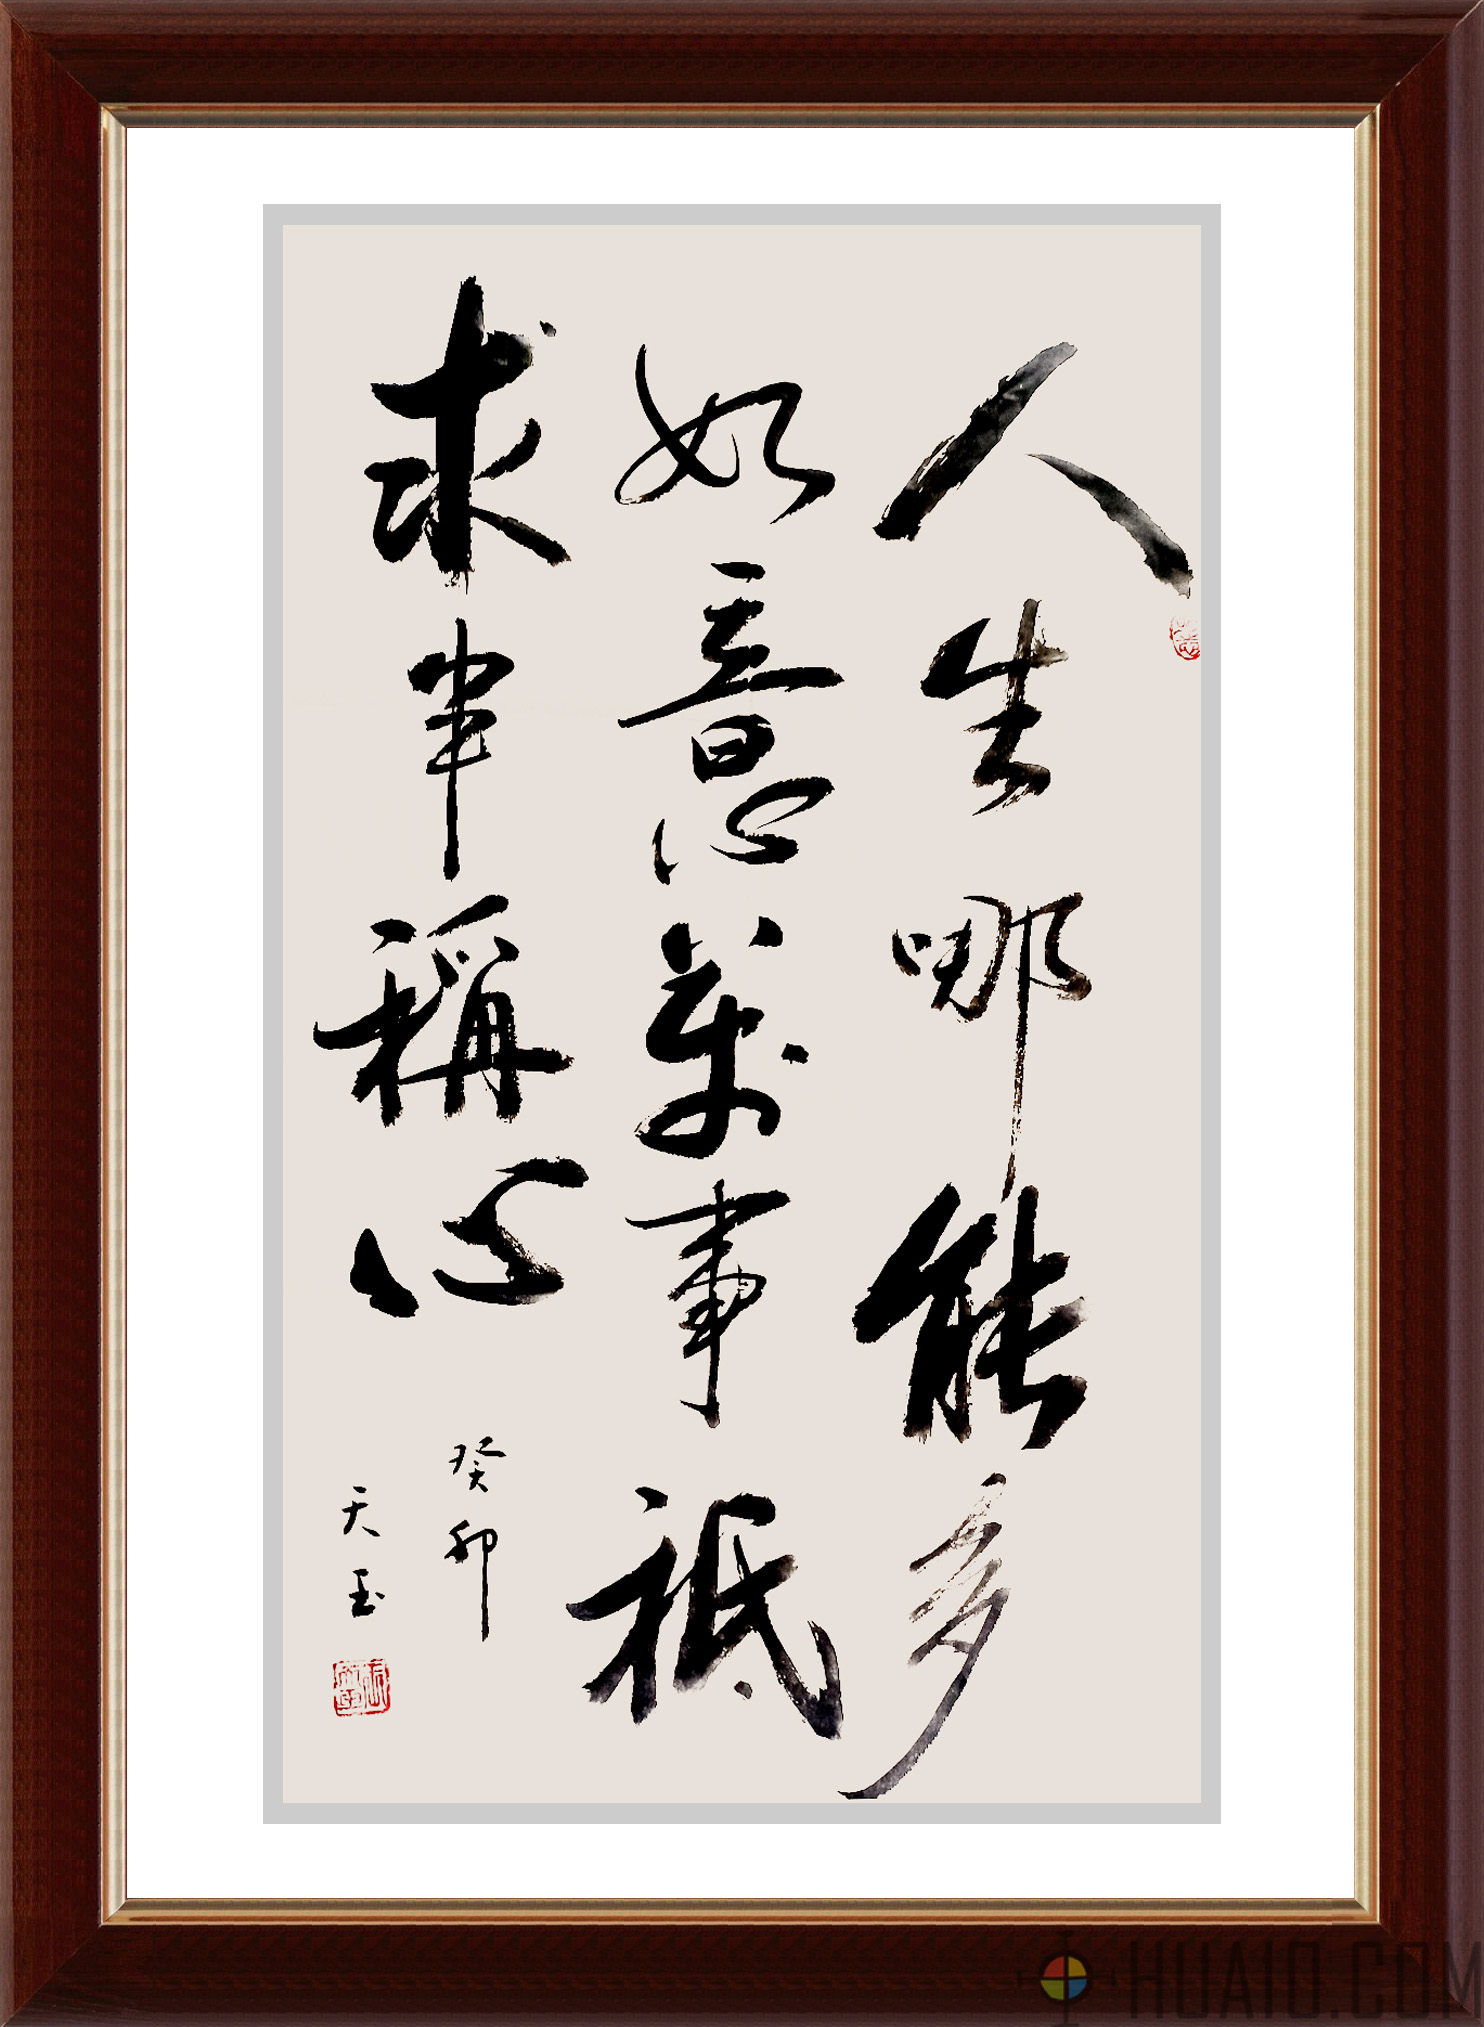 人生哪能多
如意萬事祗
求半稱心
癸卯
天玉
HUA10.COM